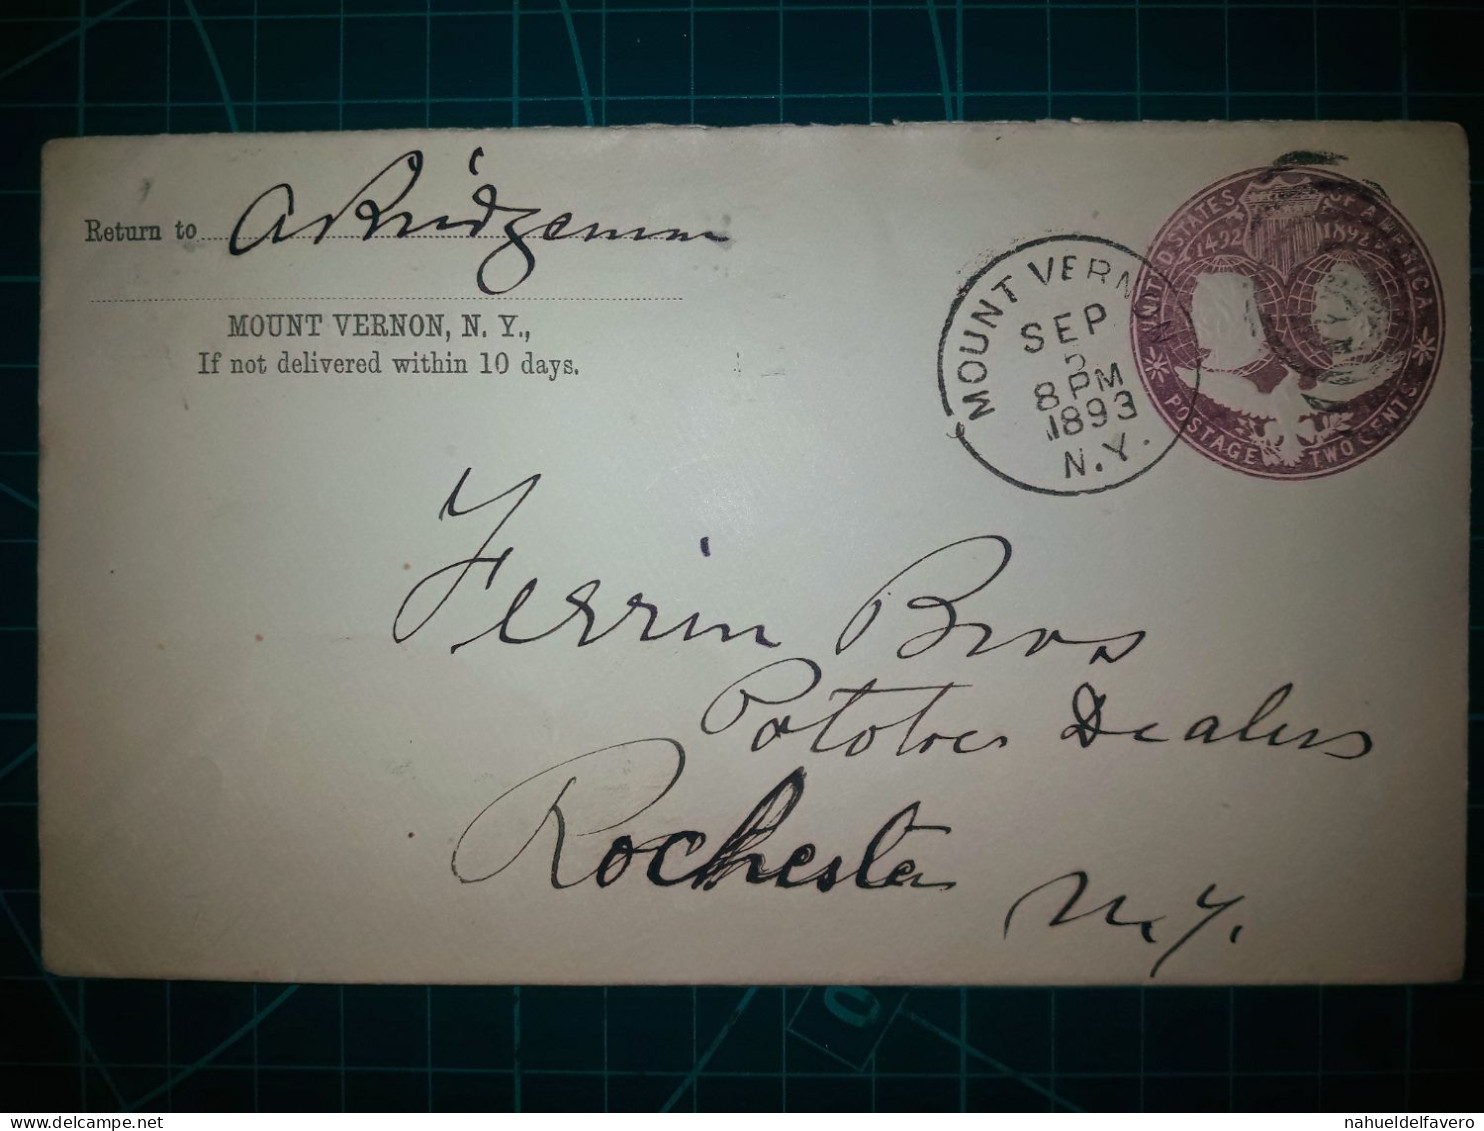 Return to A Bridgeman
MOUNT VERNON, N. Y.,
If not delivered within 10 days.
UNITED STATES OF AMERICA
1492 1892
POSTAGE TWO CENTS
MOUNT VERNON
SEP
5
8 PM
1893
N.Y.
Ferrin Bros
Potatoes Dealers
Rochester
N. Y.
nahueldelfavero